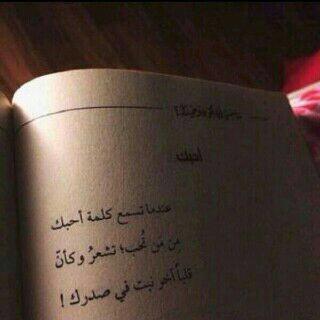 أحبك
عندما تسمع كلمة أحبك
من مَن تُحب؛ تشعرُ وكأنّ
قلباً آخر نبت في صدرك !